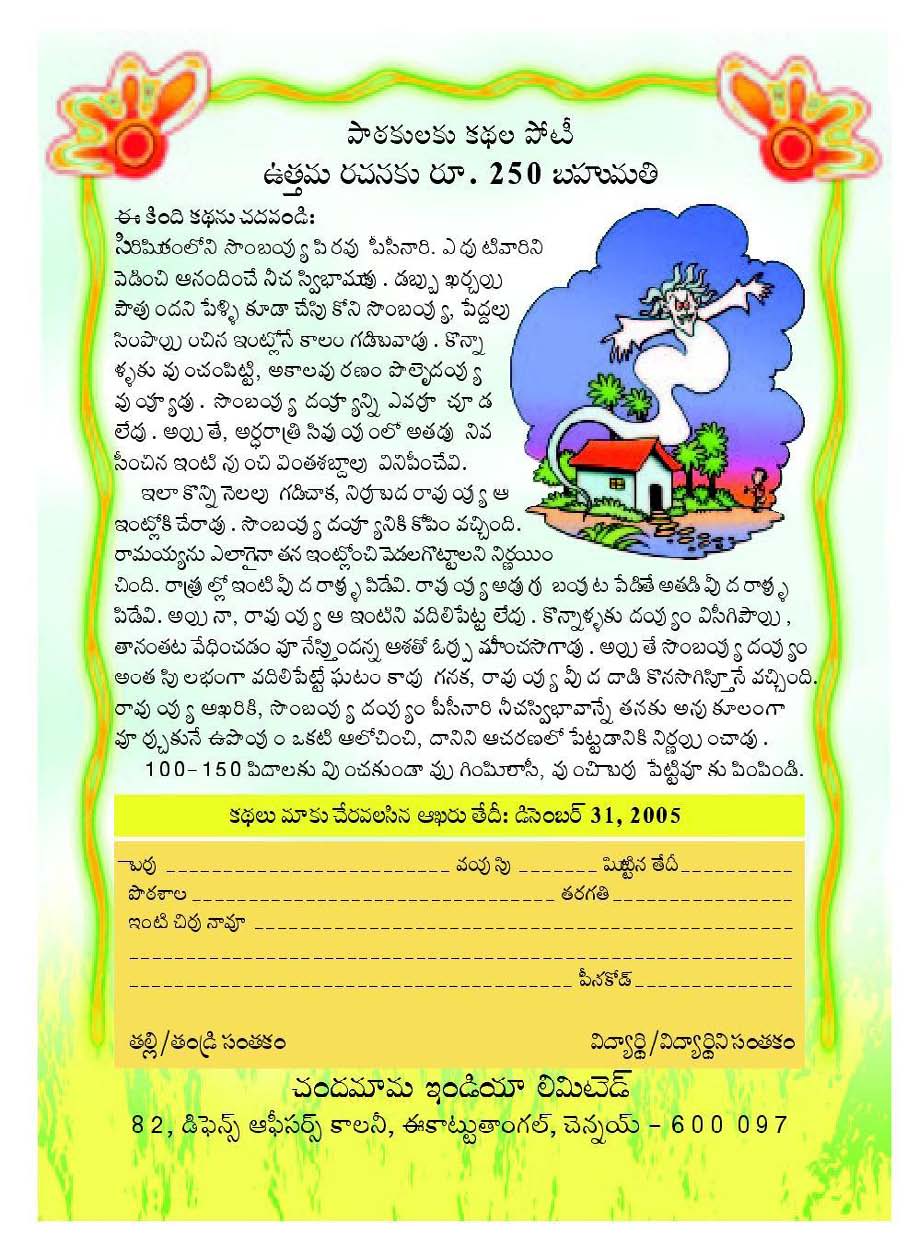 పాఠకులకు కథల పోటీ
ఉత్తమ రచనకు రూ. 250 బహుమతి
ఈ కింది కథను చదవండి:
సిరిపురంలోని సాంబయ్య పరమ పిసినారి. ఎదుటివారిని
పెడించి ఆనందించే నీచ స్వభావుడు. డబ్బు ఖర్చయి
పోతుందని పెళ్ళి కూడా చేసుకోని సాంబయ్య, పెద్దలు
సంపాయించిన ఇంట్లోనే కాలం గడిపేవాడు. కొన్నా
ళ్ళకు మంచంపట్టి, అకాలమరణం పాలై దయ్య
మయ్యాడు. సాంబయ్య దయ్యాన్ని ఎవరూ చూడ
లేదు. అయితే, అర్ధరాత్రి సమయంలో అతడు నివ
సించిన ఇంటి నుంచి వింతశబ్దాలు వినిపించేవి.
ఇలా కొన్ని నెలలు గడిచాక, నిరుపేద రామయ్య ఆ
ఇంట్లోకి చేరాడు. సాంబయ్య దయ్యానికి కోపం వచ్చింది.
రామయ్యను ఎలాగైనా తన ఇంట్లోంచి వెడలగొట్టాలని నిర్ణయిం
చింది. రాత్రుల్లో ఇంటి మీద రాళ్ళు పడేవి. రామయ్య అడుగు బయట పెడితే అతడి మీద రాళ్ళు
పడేవి. అయినా, రామయ్య ఆ ఇంటిని వదిలిపెట్టలేదు. కొన్నాళ్ళకు దయ్యం విసిగిపోయి,
తానంతట వేధించడం మానేస్తుందన్న ఆశతో ఓర్పు వహించసాగాడు. అయితే సాంబయ్య దయ్యం
అంత సులభంగా వదిలిపెట్టే ఘటం కాదు గనక, రామయ్య మీద దాడి కొనసాగిస్తూనే వచ్చింది.
రామయ్య ఆఖరికి, సాంబయ్య దయ్యం పిసినారి నీచస్వభావాన్నే తనకు అనుకూలంగా
మార్చుకునే ఉపాయం ఒకటి ఆలోచించి, దానిని ఆచరణలో పెట్టడానికి నిర్ణయించాడు.
100-150 పదాలకు మించకుండా ముగింపురాసి, మంచి పేరు పెట్టి మాకు పంపండి.
కథలు మాకు చేరవలసిన ఆఖరు తేదీ: డిసెంబర్ 31, 2005
పేరు _________________________ వయసు _______ పుట్టిన తేదీ __________
పాఠశాల ________________________________ తరగతి ________________
ఇంటి చిరునామా ________________________________________________
___________________________________________________________
_______________________________________ పిన్‌కోడ్ ______________
తల్లి/తండ్రి సంతకం విద్యార్థి/విద్యార్థిని సంతకం
చందమామ ఇండియా లిమిటెడ్
82, డిఫెన్స్ ఆఫీసర్స్ కాలనీ, ఈకాట్టుతాంగల్, చెన్నయ్ - 600 097